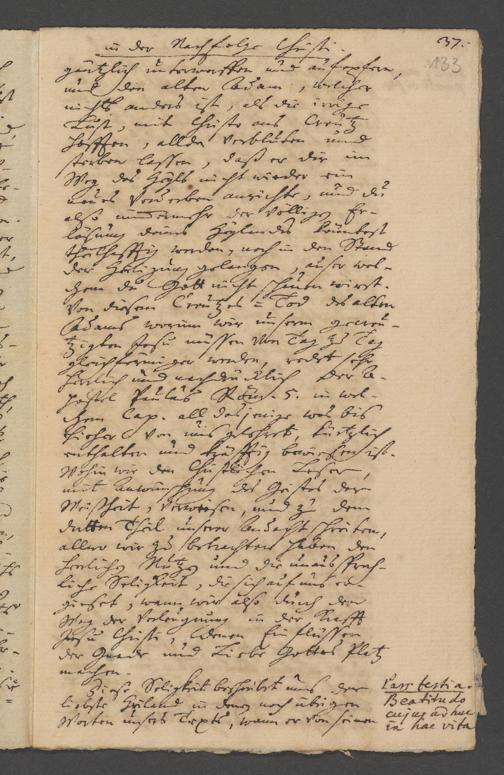 in der Nachfolge Christi.
37.
133
gäntzlich unterwerffen und aufopfern,
und den alten Adam, welcher
nichts anders ist, als die irrige
Lust, mit Christo ans Creutz
hefften, allda verbluten und
sterben lassen, daß er dir im
Weg des Heyls nicht wieder ein
neues Verderben anrichte, und du
also nimmermehr der völligen Er-
lösung deines Heylandes könntest
theilhafftig werden, noch in den Stand
der Heiligung gelangen, ausser wel-
chem du Gott nicht schauen wirst.
Von diesem Creutzes Tod des alten
Adams, worinn wir unserm gecreu-
tzigten Jesu müssen von Tag zu Tag
gleichförmiger werden, redet sehr
herrlich und nachdrücklich der A-
postel Paulus Röm. 5. in wel-
chem Cap. all dasjenige was bis
hieher von uns gelehrt, kürtzlich
enthalten und kräfftig bewiesen ist.
Wohin wir den Christlichen Leser,
mit Anwünschung des Geistes der
Weißheit, verweisen, und zu dem
dritten Theil unserer Andacht schreiten,
allwo wir zu betrachten haben den
herrlichen Nutzen und die unaussprech-
liche Seligkeit, die sich auf uns er-
giesset, wann wir also durch den
Weg der Verleugnung in der Krafft
Jesu Christi, denen Einflüssen
der Gnade und Liebe Gottes Platz
machen.
Diese Seligkeit beschreibt uns der
liebste Heiland in denen noch übrigen
Worten unsers Texts, wann er von seinen
Pars tertia.
Beatitudo
cujus ad huc
in hac vita